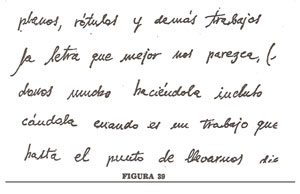 planos, rótulos y demás trabajos
la letra que mejor nos parezca, (
donos mucho haciéndola incluso
cándola cuando es un trabajo que
hasta el punto de llevarnos die
FIGURA 39